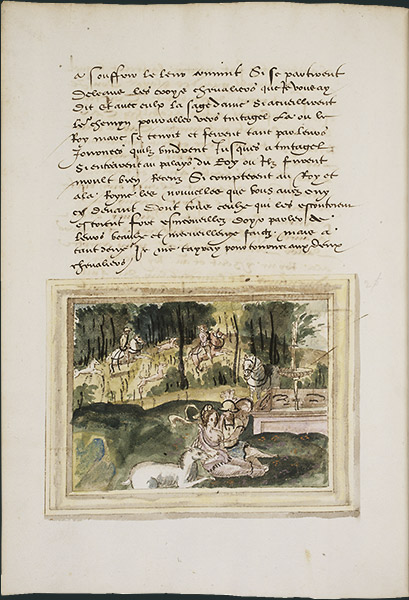 a souffrir le leur ennint Si se partirent
de leans les troys chevaliers que je vous ay
dit et avec eulx la sage dame Si acueillirent
le chemin pour aller vers tintagel La ou le
Roy marc se tenoit et firent tant par leurs
journees quilz vindrent jusques a tintagel
Si entrerent au palays du Roy ou ilz furent
moult bien receuz Si compterent au Roy et
a la Royne les nouvelles que vous avez ouy
cy devant Dont tous ceulx qui les escouterent
estoient fort esmerveillez doyr parler de
leurs beaulte et merveilleux faictz mais a
tant deulx Je me tayray pour tourner aux deux
chevaliers